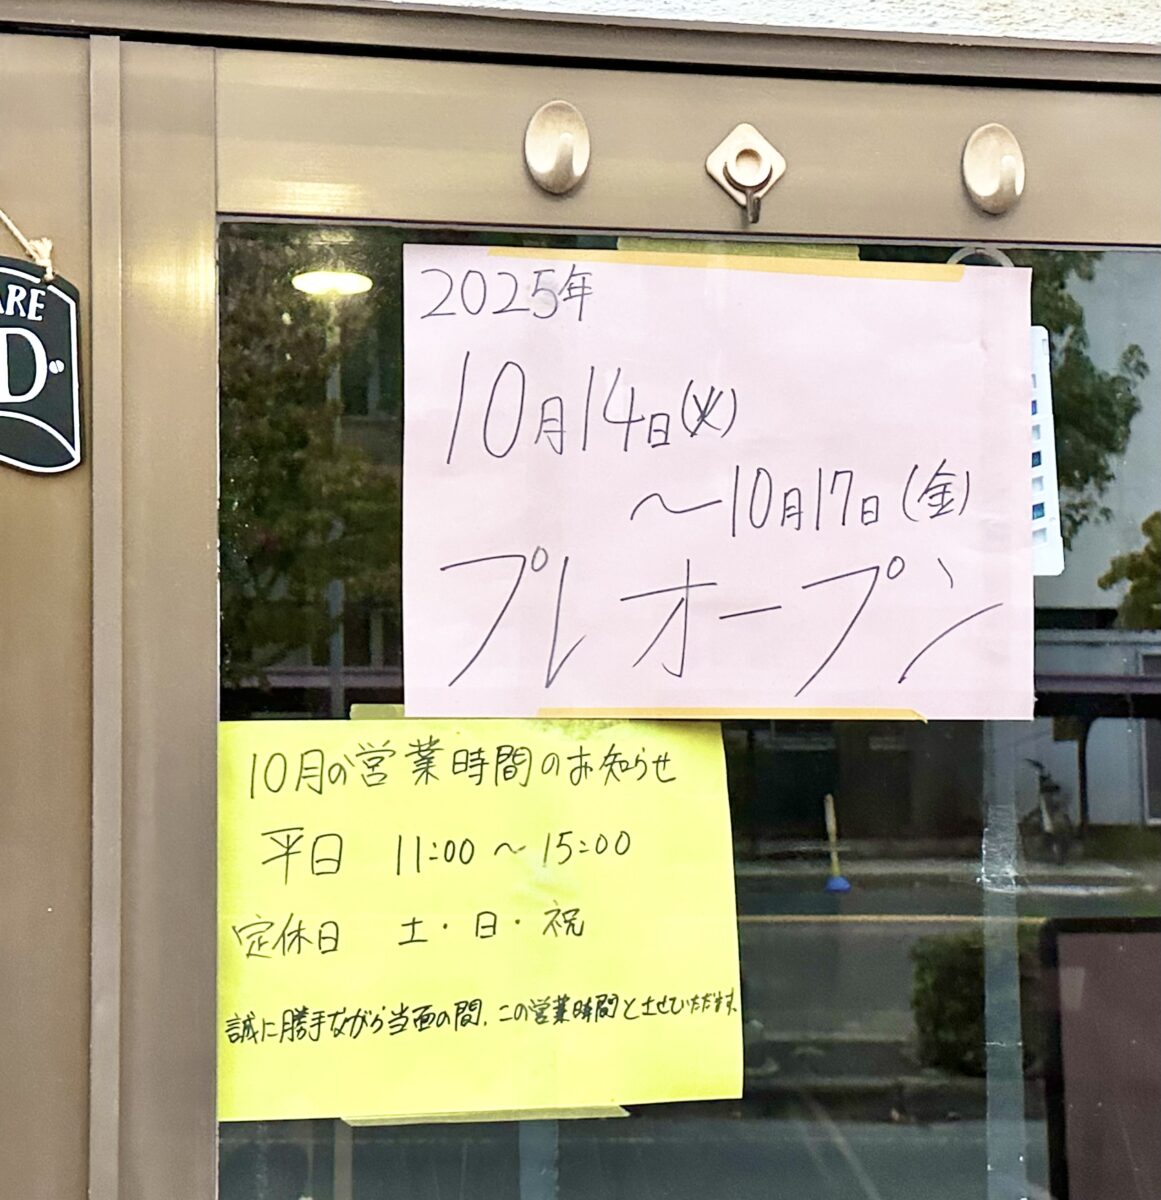 ARE
D
2025年
10月14日(火)
～10月17日(金)
プレオープン
10月の営業時間のお知らせ
平日 11:00～15:00
定休日 土・日・祝
誠に勝手ながら当面の間、この営業時間とさせていただきます。